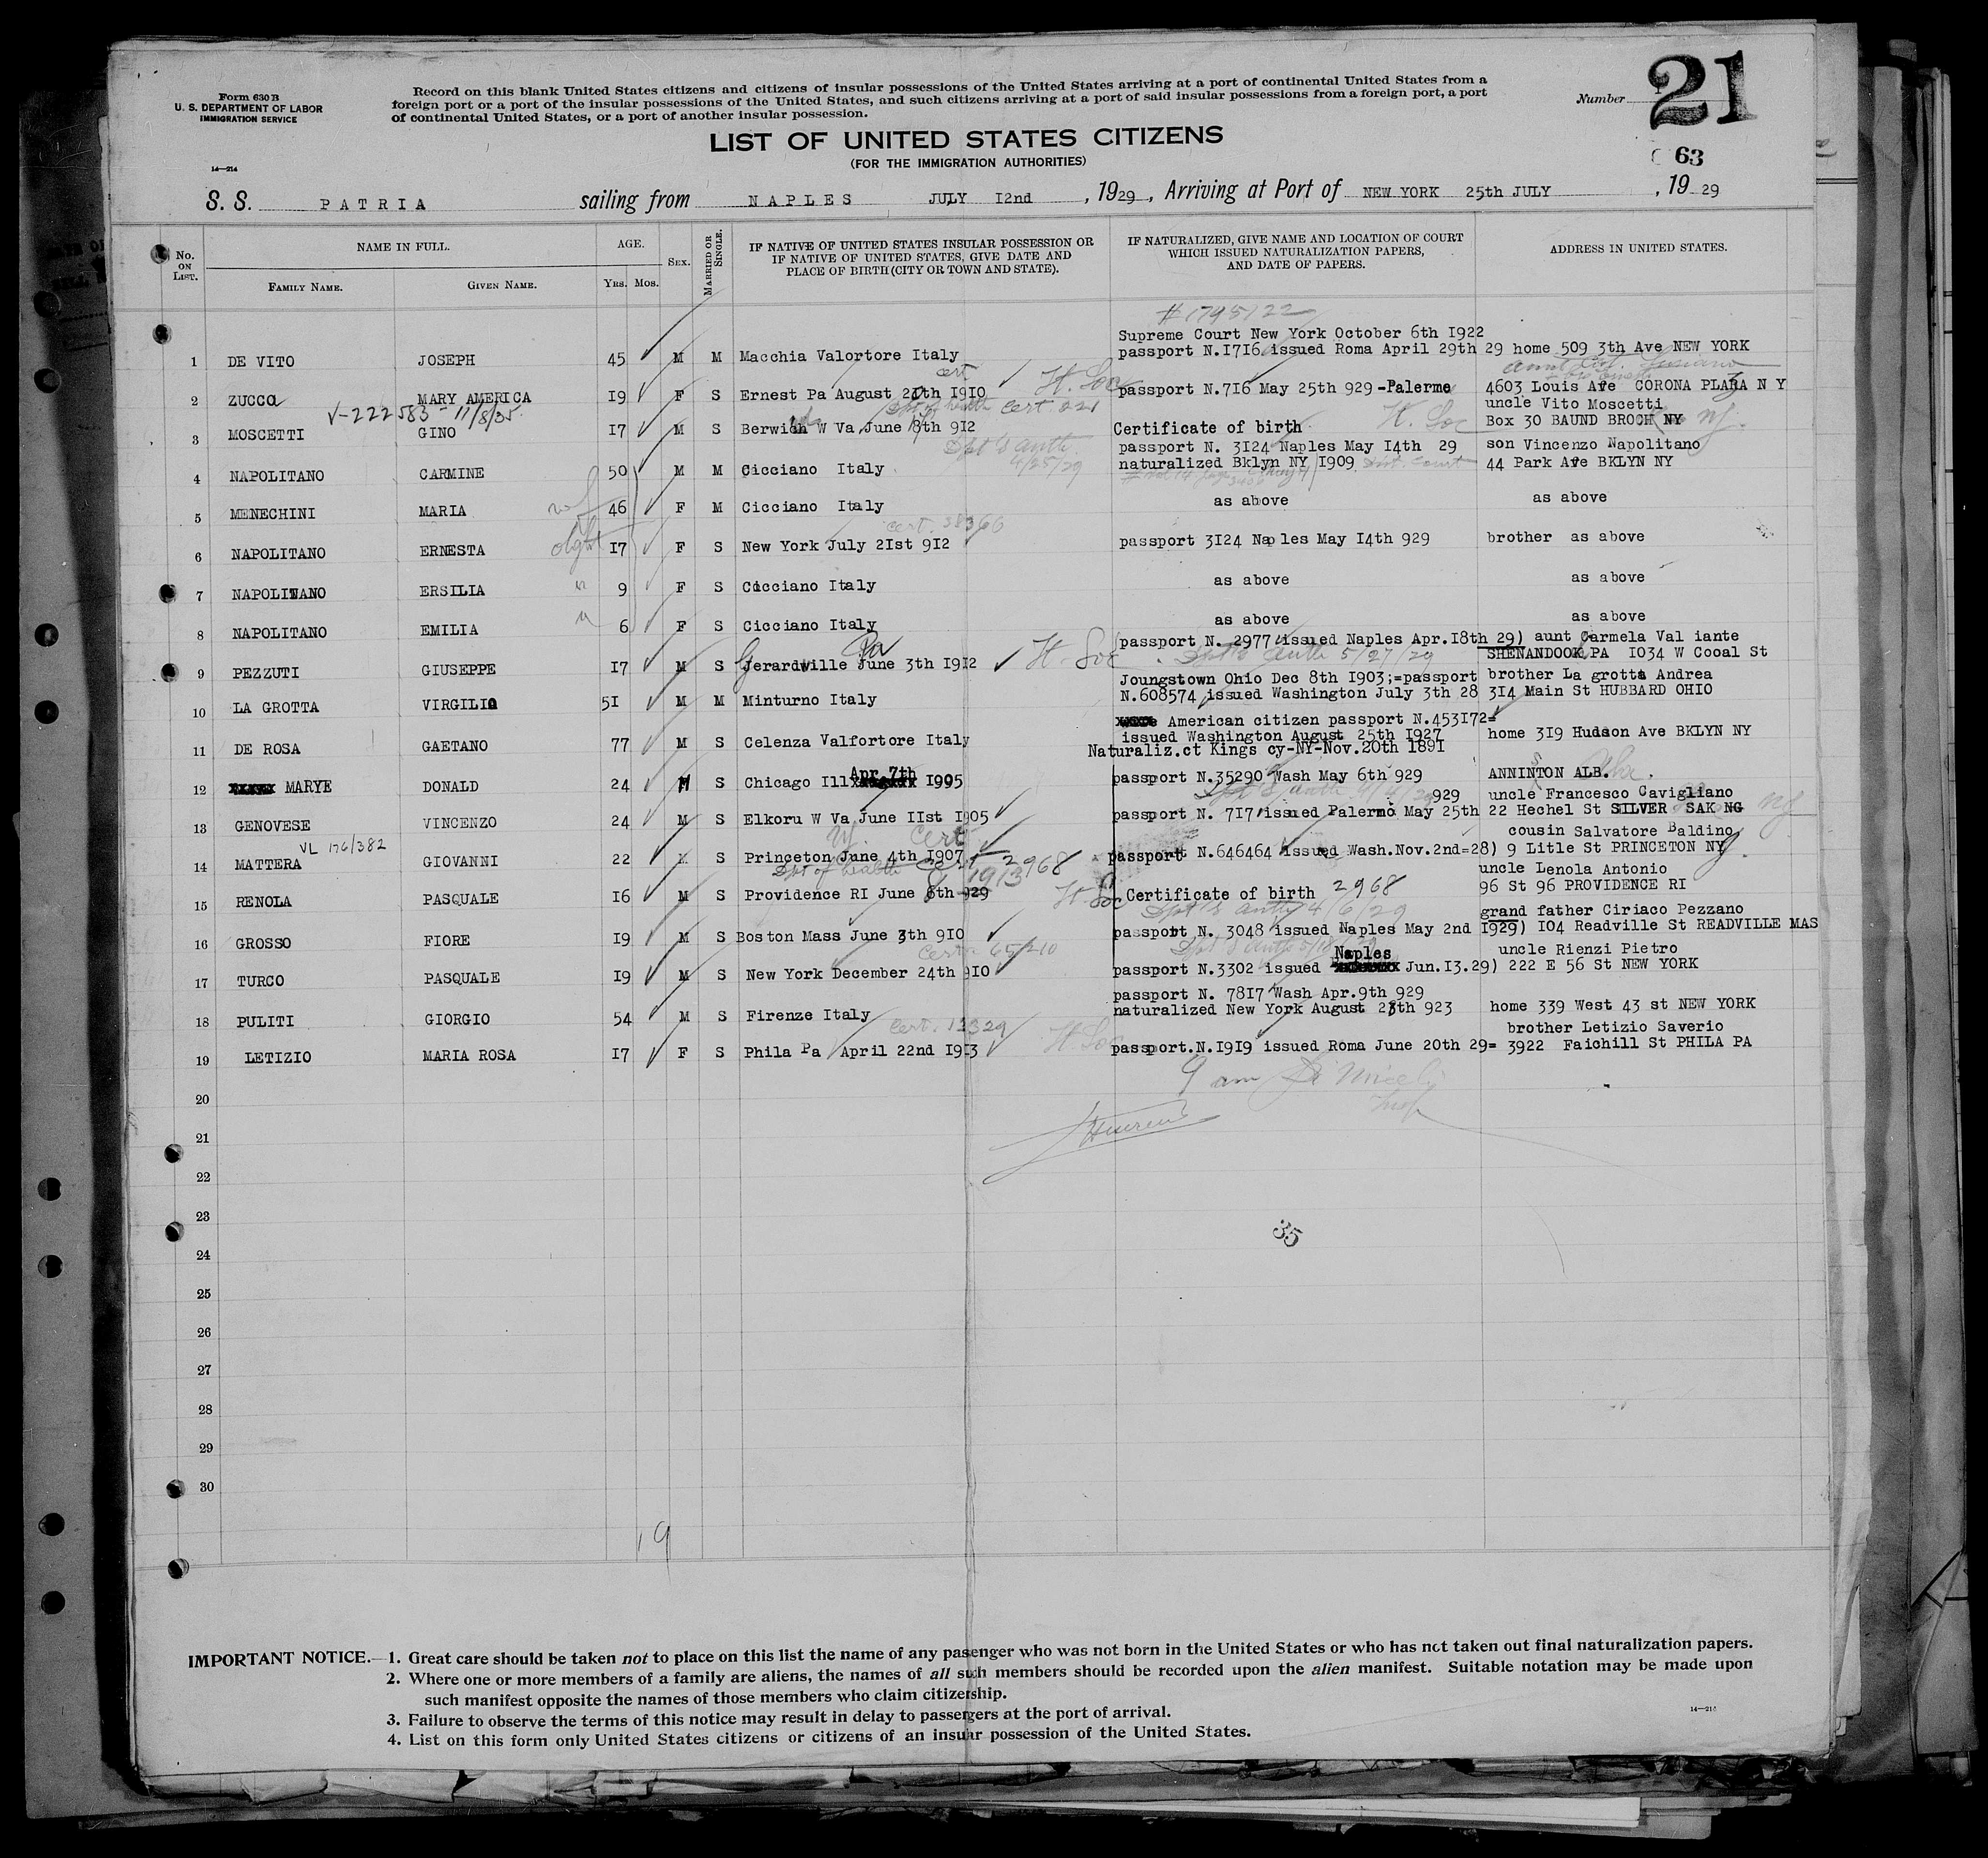 Form 630 B
U. S. DEPARTMENT OF LABOR
IMMIGRATION SERVICE
14—214
Record on this blank United States citizens and citizens of insular possessions of the United States arriving at a port of continental United States from a
foreign port or a port of the insular possessions of the United States, and such citizens arriving at a port of said insular possessions from a foreign port, a port
of continental United States, or a port of another insular possession.
Number 21
63
LIST OF UNITED STATES CITIZENS
(FOR THE IMMIGRATION AUTHORITIES)
S. S. PATRIA sailing from NAPLES JULY I2nd , 1929 , Arriving at Port of NEW YORK 25th JULY , 19 29
No. ON LIST.
NAME IN FULL.
FAMILY NAME.
GIVEN NAME.
AGE.
YRS. MOS.
SEX.
MARRIED OR SINGLE.
IF NATIVE OF UNITED STATES INSULAR POSSESSION OR
IF NATIVE OF UNITED STATES, GIVE DATE AND
PLACE OF BIRTH (CITY OR TOWN AND STATE).
IF NATURALIZED, GIVE NAME AND LOCATION OF COURT
WHICH ISSUED NATURALIZATION PAPERS,
AND DATE OF PAPERS.
ADDRESS IN UNITED STATES.
#1795122
Supreme Court New York October 6th I922
1 DE VITO JOSEPH 45 M M Macchia Valortore Italy passport N.I7I6 issued Roma April 29th 29 home 509 3th Ave NEW YORK
cert H. Soc
2 ZUCCa MARY AMERICA I9 F S Ernest Pa August 20th I9I0 passport N.7I6 May 25th 929 -Palerme 4603 Louis Ave CORONA PLAZA N Y
V-222583 - 11/8/35.
uncle Vito Moscetti
3 MOSCETTI GINO I7 M S Berwich W Va June 8th 9I2 Certificate of birth H. Soc Box 30 BAUND BROCH NY NJ.
passport N. 3I24 Naples May I4th 29 son Vincenzo Napolitano
4 NAPOLITANO CARMINE 50 M M Cicciano Italy 4/25/29 naturalized Bklyn NY I909 44 Park Ave BKLYN NY
5 MENECHINI MARIA wf 46 F M Cicciano Italy as above as above
cert. 38366
6 NAPOLITANO ERNESTA I7 F S New York July 2Ist 9I2 passport 3I24 Naples May I4th 929 brother as above
7 NAPOLITANO ERSILIA " 9 F S Cicciano Italy as above as above
8 NAPOLITANO EMILIA " 6 F S Cicciano Italy as above as above
Pa H. Soc
passport N. 2977 issued Naples Apr.I8th 29) aunt Carmela Val iante
9 PEZZUTI GIUSEPPE I7 M S Gerardville June 3th I9I2 5/27/29 SHENANDOOK PA I034 W Cooal St
Joungstown Ohio Dec 8th I903;=passport brother La grotta Andrea
10 LA GROTTA VIRGILIO 5I M M Minturno Italy N.608574 issued Washington July 3th 28 3I4 Main St HUBBARD OHIO
American citizen passport N.453I72=
issued Washington August 25th I927
11 DE ROSA GAETANO 77 M S Celenza Valfortore Italy Naturaliz.ct Kings cy-NY-Nov.20th I89I home 3I9 Hudson Ave BKLYN NY
Apr 7th
12 MARYE DONALD 24 M S Chicago Ill I905 passport N.35290 Wash May 6th 929 ANNINTON ALB.
929 uncle Francesco Cavigliano
13 GENOVESE VINCENZO 24 M S Elkoru W Va June IIst I905 passport N. 7I7 issued Palermo May 25th 22 Hechel St SILVER SAK NG NJ
VL 176/382
NJ. cert
cousin Salvatore Baldino
14 MATTERA GIOVANNI 22 M S Princeton June 4th I907 passport N.646464 issued Wash.Nov.2nd=28) 9 Litle St PRINCETON NY
Dpt of health cert 2968
1913
uncle Lenola Antonio
15 RENOLA PASQUALE I6 M S Providence RI June 8th 929 H. Soc Certificate of birth 2968 96 St 96 PROVIDENCE RI
4/6/29
grand father Ciriaco Pezzano
16 GROSSO FIORE I9 M S Boston Mass June 3th 9I0 passport N. 3048 issued Naples May 2nd I929) I04 Readville St READVILLE MAS
Cert. 65210
Naples uncle Rienzi Pietro
17 TURCO PASQUALE I9 M S New York December 24th 9I0 passport N.3302 issued Jun.I3.29) 222 E 56 St NEW YORK
passport N. 78I7 Wash Apr.9th 929
18 PULITI GIORGIO 54 M S Firenze Italy naturalized New York August 28th 923 home 339 West 43 st NEW YORK
Cert. 12329 H. Soc
brother Letizio Saverio
19 LETIZIO MARIA ROSA I7 F S Phila Pa April 22nd I9I3 passport.N.I9I9 issued Roma June 20th 29= 3922 Faichill St PHILA PA
20
21
22
23
24
25
26
27
28
29
30
35
19
IMPORTANT NOTICE.—1. Great care should be taken not to place on this list the name of any passenger who was not born in the United States or who has not taken out final naturalization papers.
2. Where one or more members of a family are aliens, the names of all such members should be recorded upon the alien manifest. Suitable notation may be made upon
such manifest opposite the names of those members who claim citizenship.
3. Failure to observe the terms of this notice may result in delay to passengers at the port of arrival.
4. List on this form only United States citizens or citizens of an insular possession of the United States.
14—214